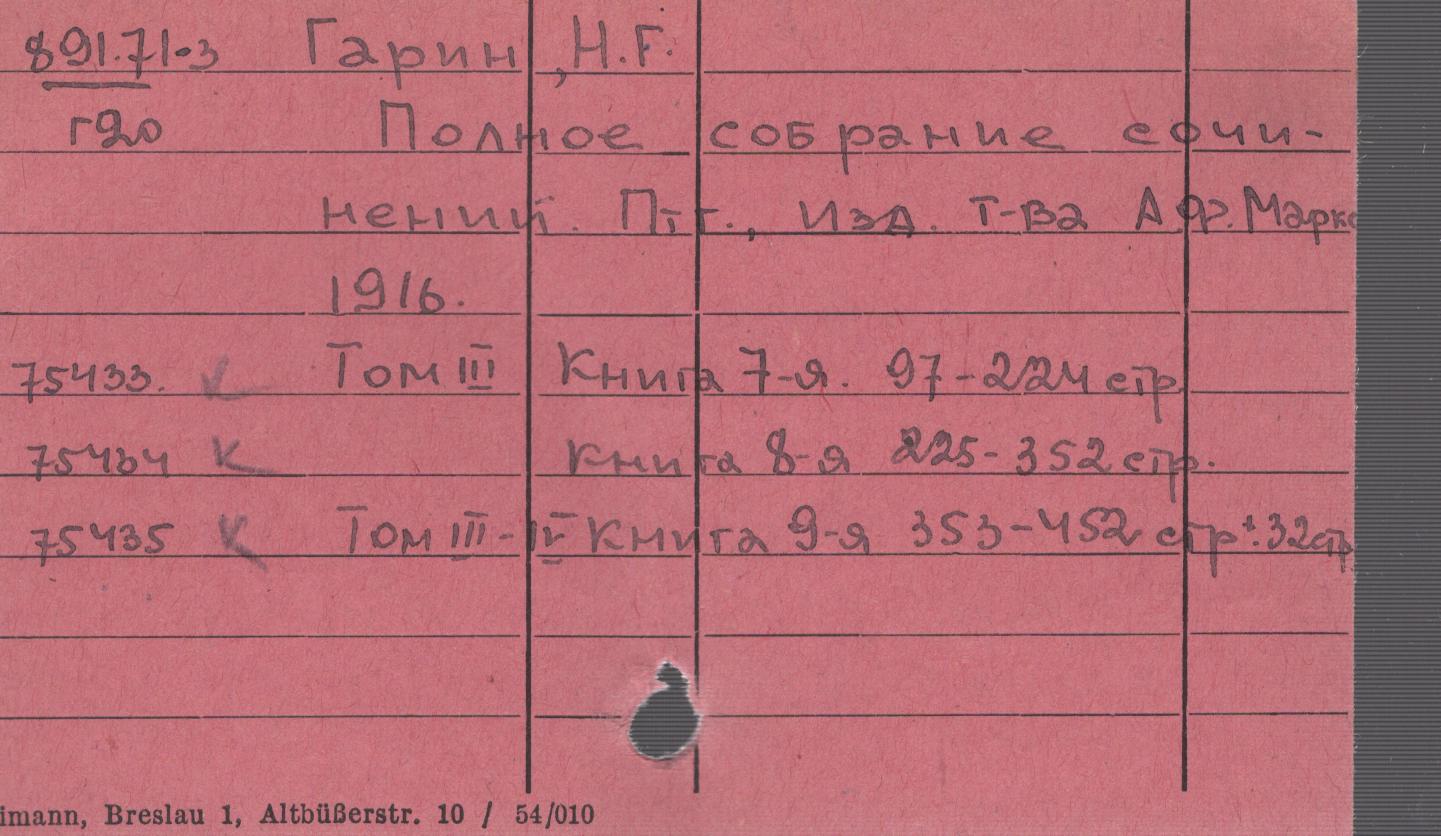 891.71-3 Гарин, Н.Г.
г20 Полное собрание сочи-
нений. Птг., Изд. т-ва А.Ф. Маркс
1916.
75433. К Том III Книга 7-я. 97-224 стр.
75434 К Книга 8-я 225-352 стр.
75435 К Том III-IV Книга 9-я 353-452 стр.+32стр
imann, Breslau 1, Altbüßerstr. 10 / 54/010